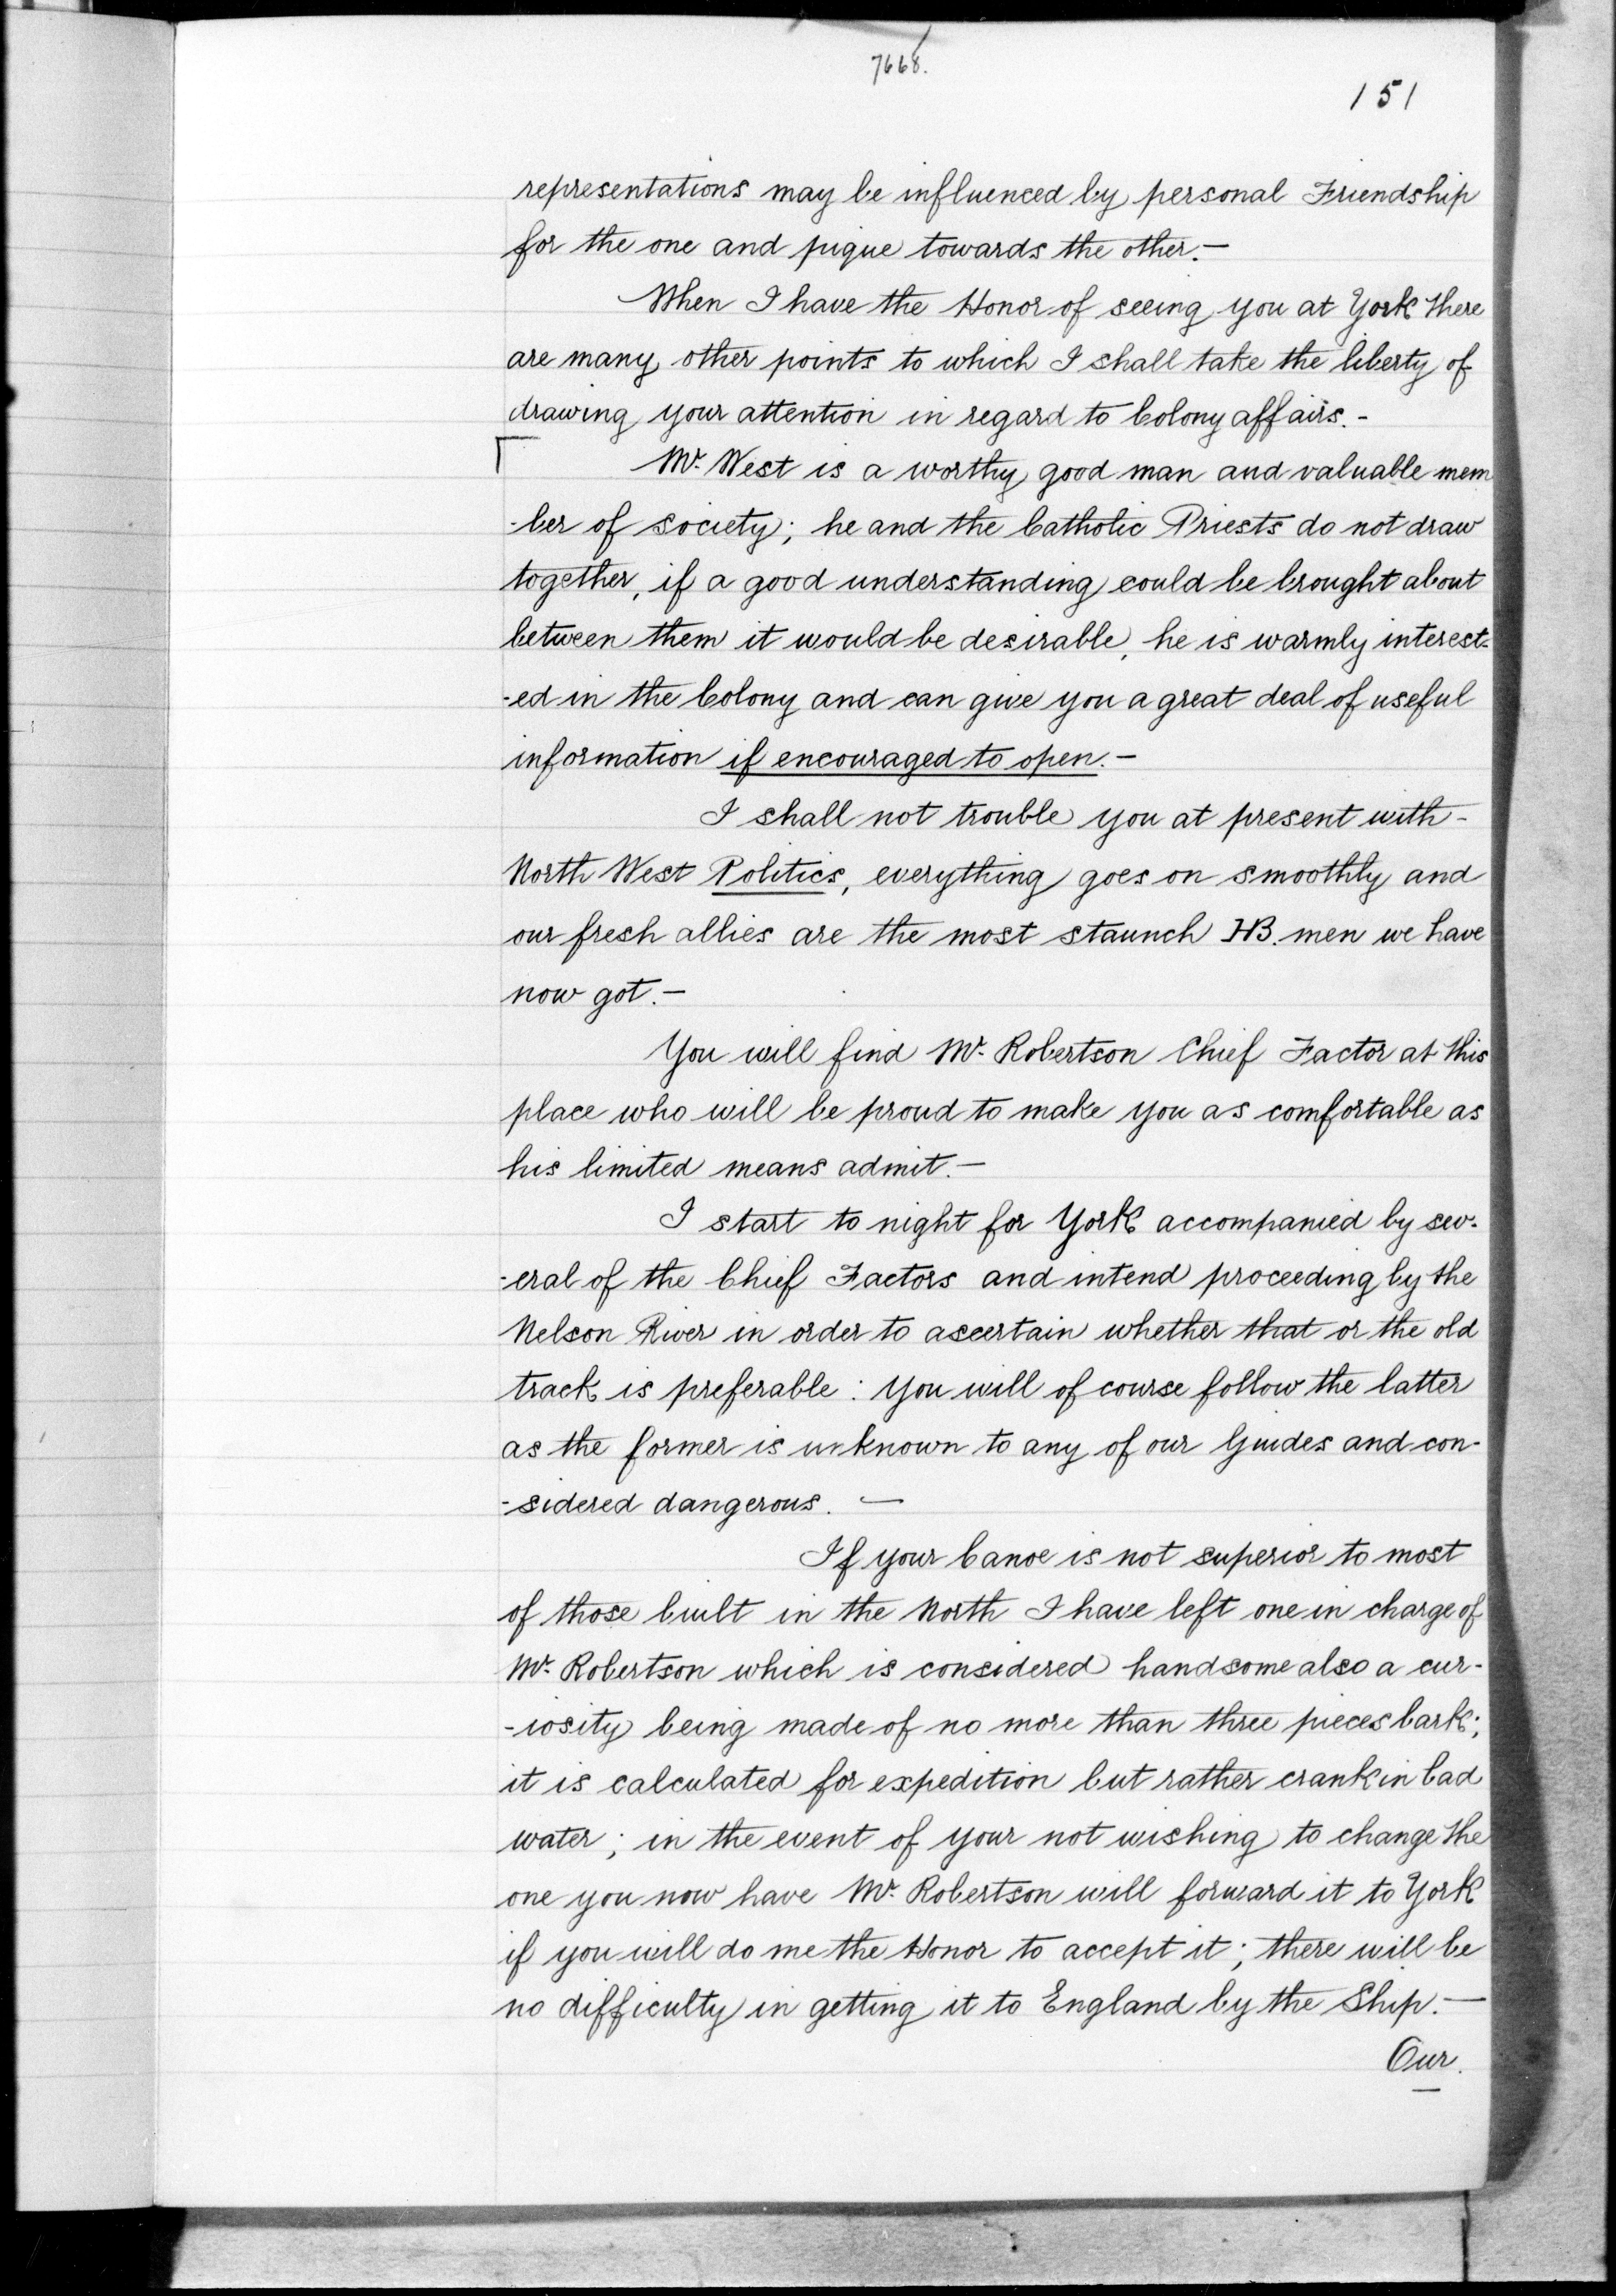 7668.
151
representations may be influenced by personal Friendship
for the one and pique towards the other.—
When I have the Honor of seeing you at York there
are many other points to which I shall take the liberty of
drawing your attention in regard to Colony affairs.-
Mr. West is a worthy good man and valuable mem
-ber of society; he and the Catholic Priests do not draw
together, if a good understanding could be brought about
between them it would be desirable, he is warmly interest-
-ed in the Colony and can give you a great deal of useful
information if encouraged to open.—
I shall not trouble you at present with-
North West Politics, everything goes on smoothly and
our fresh allies are the most staunch HB. men we have
now got.—
You will find Mr. Robertson Chief Factor at this
place who will be proud to make you as comfortable as
his limited means admit.—
I start to night for York accompanied by sev-
-eral of the Chief Factors and intend proceeding by the
Nelson River in order to ascertain whether that or the old
track is preferable: you will of course follow the latter
as the former is unknown to any of our Guides and con-
-sidered dangerous. —
If your Canoe is not superior to most
of those built in the North I have left one in charge of
Mr. Robertson which is considered handsome also a cur-
-iosity being made of no more than three pieces bark;
it is calculated for expedition but rather crank in bad
water; in the event of your not wishing to change the
one you now have Mr. Robertson will forward it to York
if you will do me the Honor to accept it; there will be
no difficulty in getting it to England by the Ship.—
Our.